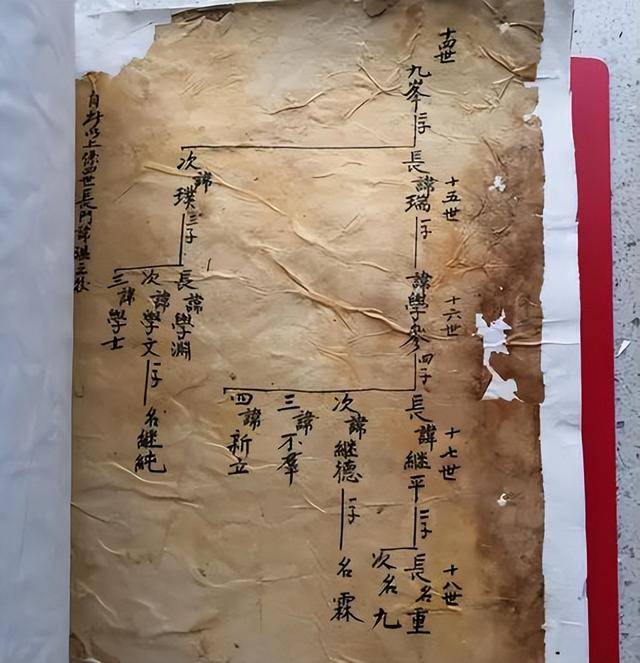 十四世
十五世
十六世
十七世
十八世
九峯 二子
長 諱瑞 一子
諱學參 四子
長 諱継平 二子
長名重
次名九
次 諱継德 一子
名霖
三 諱不羣
四 諱新立
次 諱璞 三子
長 諱學淵
次 諱學文 一子
名継純
三 諱學士
以上係四世長門諱